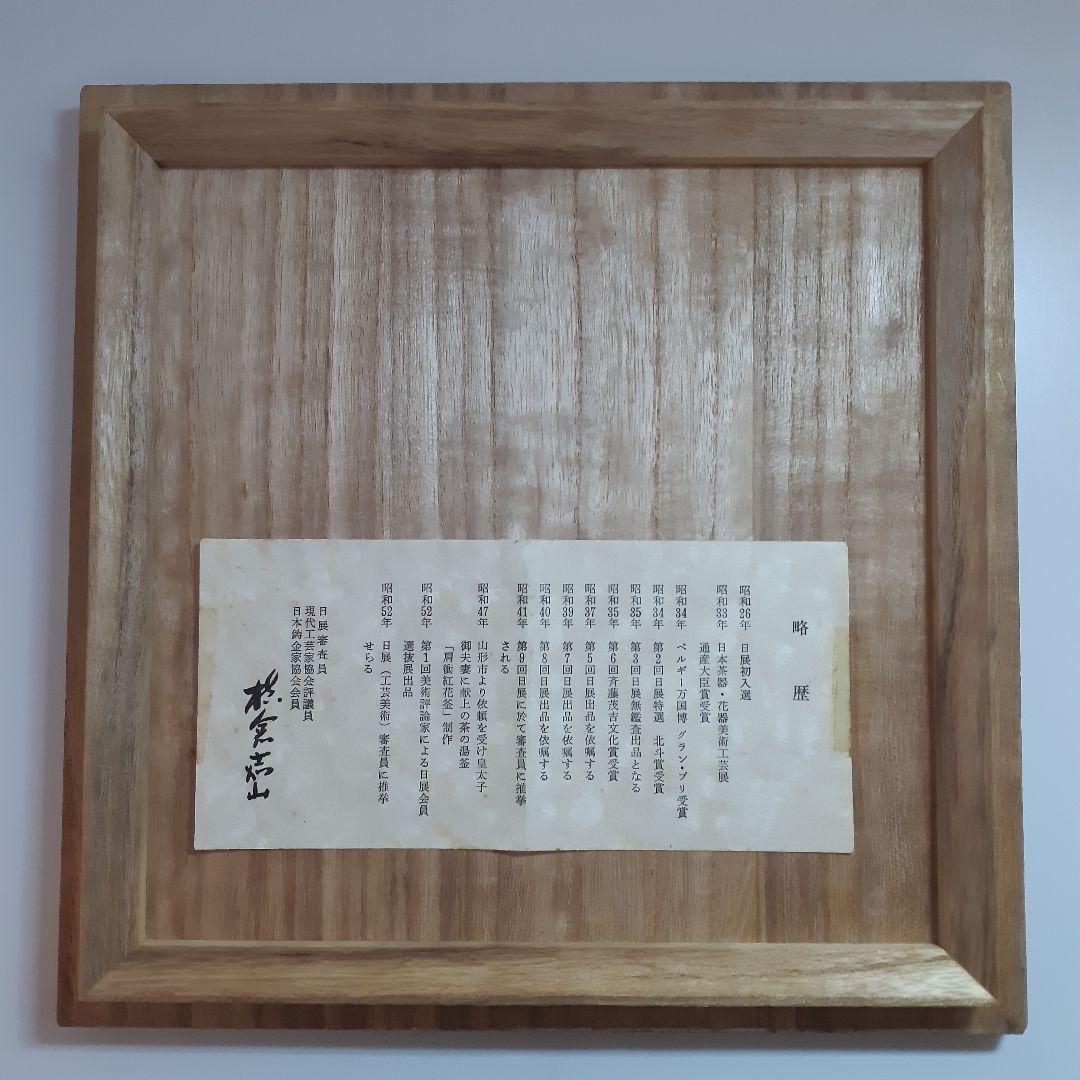 略歴
昭和26年 日展初入選
昭和33年 日本茶器・花器美術工芸展
通産大臣賞受賞
昭和34年 ベルギー万国博 グラン・プリ受賞
昭和34年 第2回日展特選 北斗賞受賞
昭和35年 第3回日展無鑑査出品となる
昭和35年 第6回斉藤茂吉文化賞受賞
昭和37年 第5回日展出品を依嘱する
昭和39年 第7回日展出品を依嘱する
昭和40年 第8回日展出品を依嘱する
昭和41年 第9回日展に於て審査員に推挙
される
昭和47年 山形市より依頼を受け皇太子
御夫妻に献上の茶の湯釜
「肩衝紅花釜」制作
昭和52年 第1回美術評論家による日展会員
選抜展出品
昭和52年 日展（工芸美術）審査員に推挙
せらる
日展審査員
現代工芸家協会評議員
日本鋳金家協会会員